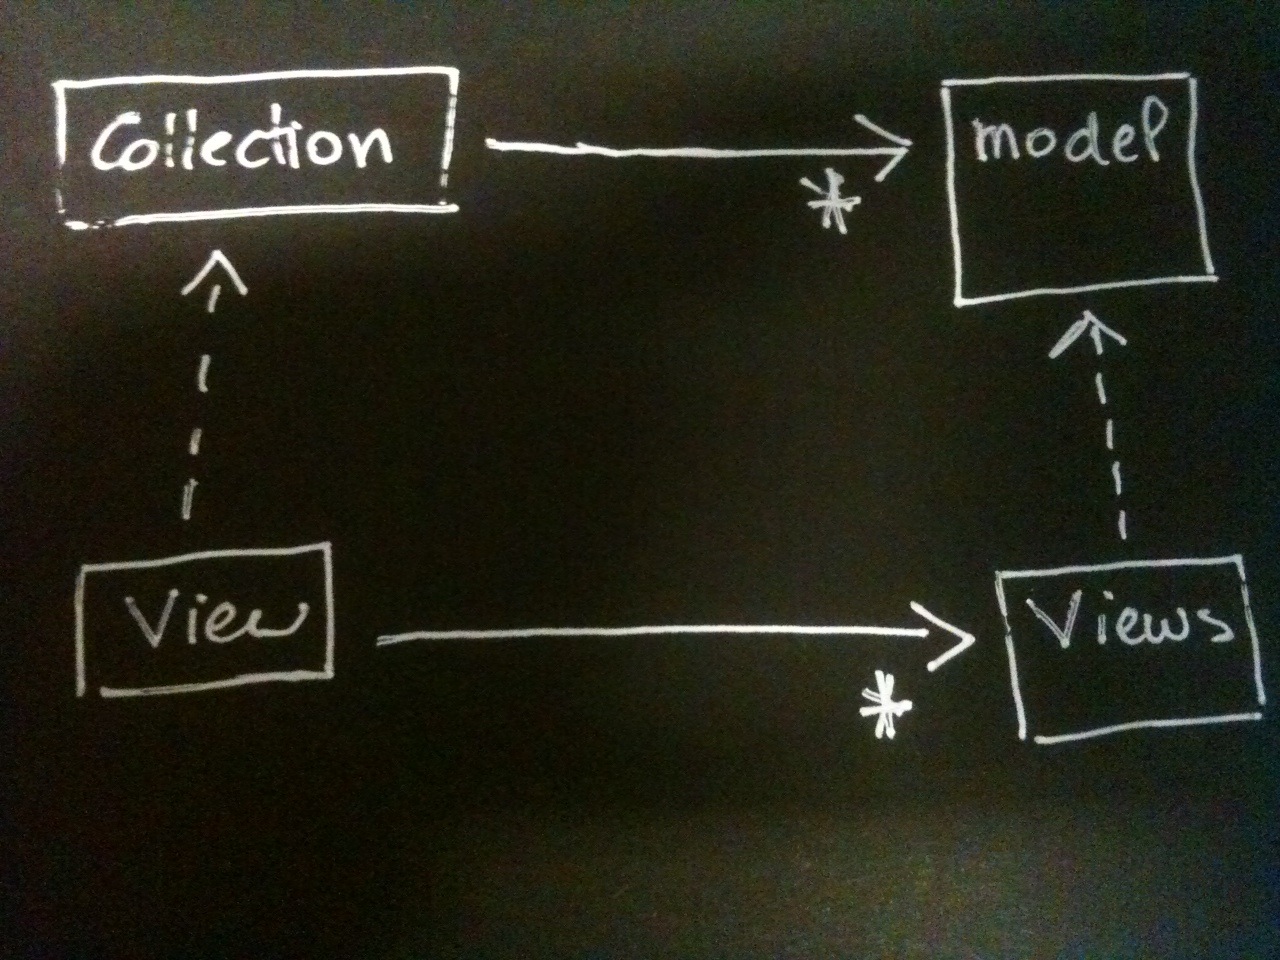 Collection
model
*
View
Views
*